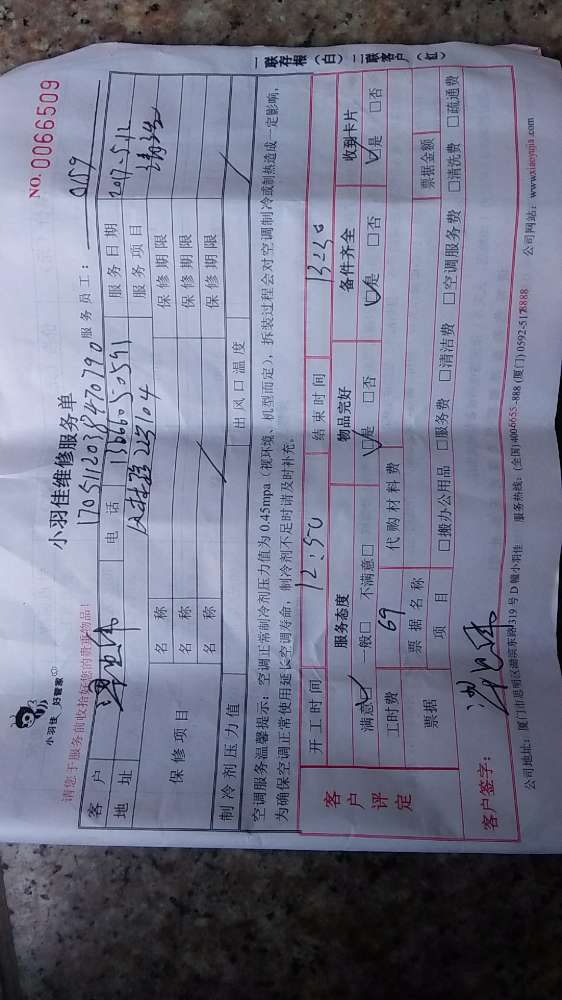 小羽佳 好管家
小羽佳维修服务单
NO. 0066509
请您于服务前收拾好您的贵重物品!
1705112038470790
服务员工: 0159
客户
电话 13666050591
服务日期 2017-5-12
地址
223104
服务项目 清洗
保修项目
名称
保修期限
名称
保修期限
名称
保修期限
制冷剂压力值
出风口温度
空调服务温馨提示:空调正常制冷剂压力值为 0.45mpa(视环境、机型而定),拆装过程会对空调制冷或制热造成一定影响,
为确保空调正常使用延长空调寿命,制冷剂不足时请及时补充。
客户评定
开工时间 12:50
结束时间 13:30
服务态度
物品完好
备件齐全
收到卡片
满意☑ 一般□ 不满意□
☑是 □否
☑是 □否
☑是 □否
工时费 69
代购材料费
票据
票据名称
票据金额
项目
□搬办公用品 □服务费 □清洁费 □空调服务费 □清洗费 □疏通费
客户签字:
公司地址:厦门市思明区湖滨东路319号D幢小羽佳
服务热线:(全国)4004655-888 (厦门) 0592-5178888
公司网站:www.xiaoyujia.com
一联存根(白) 二联客户(红)